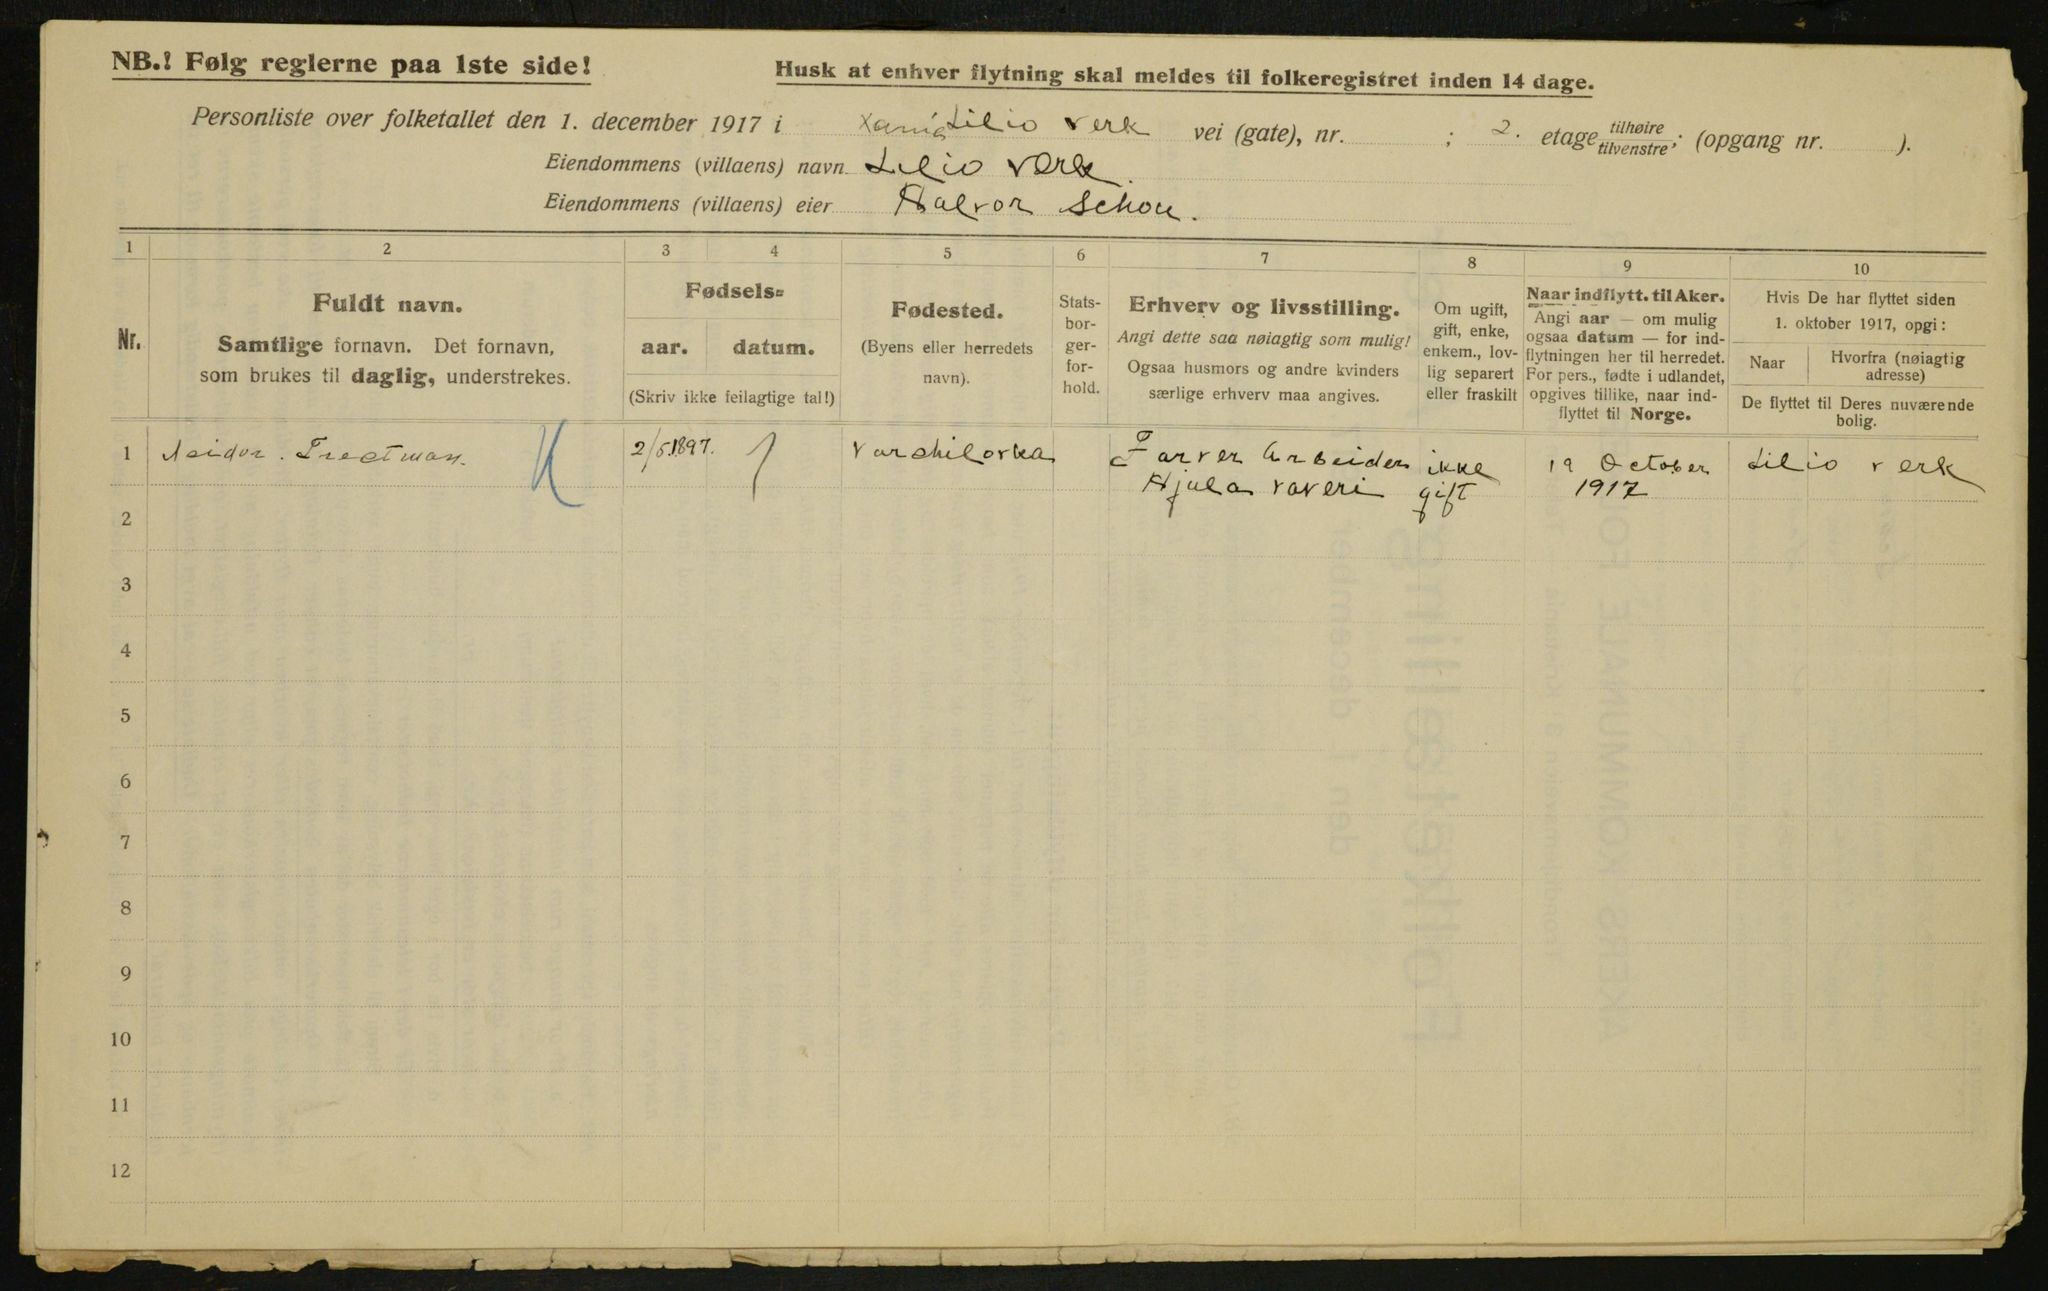 NB.! Følg reglerne paa 1ste side!
Husk at enhver flytning skal meldes til folkeregistret inden 14 dage.
Personliste over folketallet den 1. december 1917 i Lilio verk vei (gate), nr. ; 2. etage tilhøire tilvenstre; (opgang nr. ).
Eiendommens (villaens) navn Lilio værk.
Eiendommens (villaens) eier Halvor Schou.
1 2 3 4 5 6 7 8 9 10
Nr.
Fuldt navn.
Samtlige fornavn. Det fornavn,
som brukes til daglig, understrekes.
Fødsels=
aar. datum.
(Skriv ikke feilagtige tal!)
Fødested.
(Byens eller herredets
navn).
Stats-
bor-
ger-
for-
hold.
Erhverv og livsstilling.
Angi dette saa nøiagtig som mulig!
Ogsaa husmors og andre kvinders
særlige erhverv maa angives.
Om ugift,
gift, enke,
enkem., lov-
lig separert
eller fraskilt
Naar indflytt. til Aker.
Angi aar — om mulig
ogsaa datum — for ind-
flytningen her til herredet.
For pers., fødte i udlandet,
opgives tillike, naar ind-
flyttet til Norge.
Hvis De har flyttet siden
1. oktober 1917, opgi:
Naar
Hvorfra (nøiagtig
adresse)
De flyttet til Deres nuværende
bolig.
1 Treetman. 2/5 1897. Varchilovka Farver Arbeider ikke 19 October Lilio verk
Hjula væveri gift 1917
2
3
4
5
6
7
8
9
10
11
12